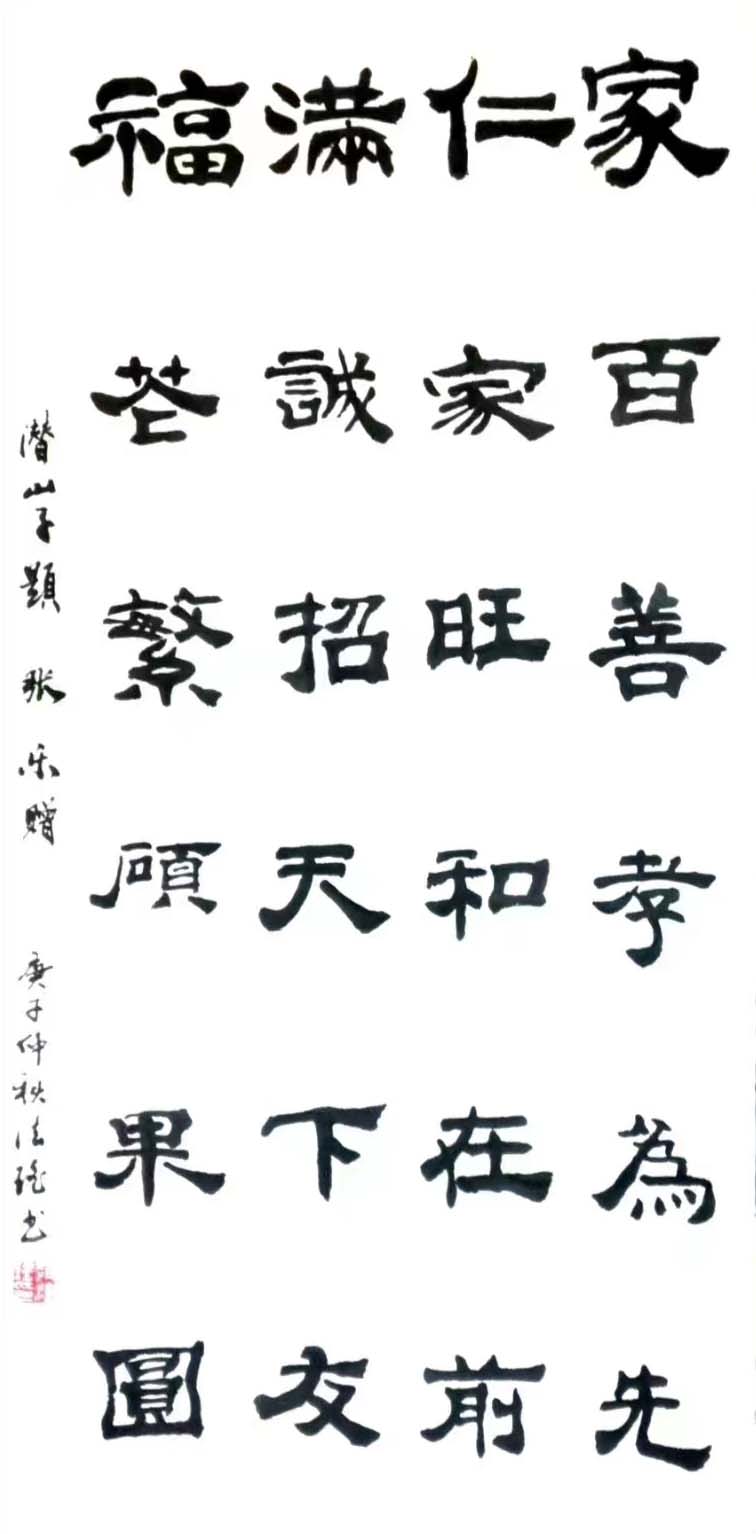 家百善孝為先
仁家旺和在前
滿誠招天下友
福花繁碩果圓
潜山子題 张乐赠 庚子仲秋 书